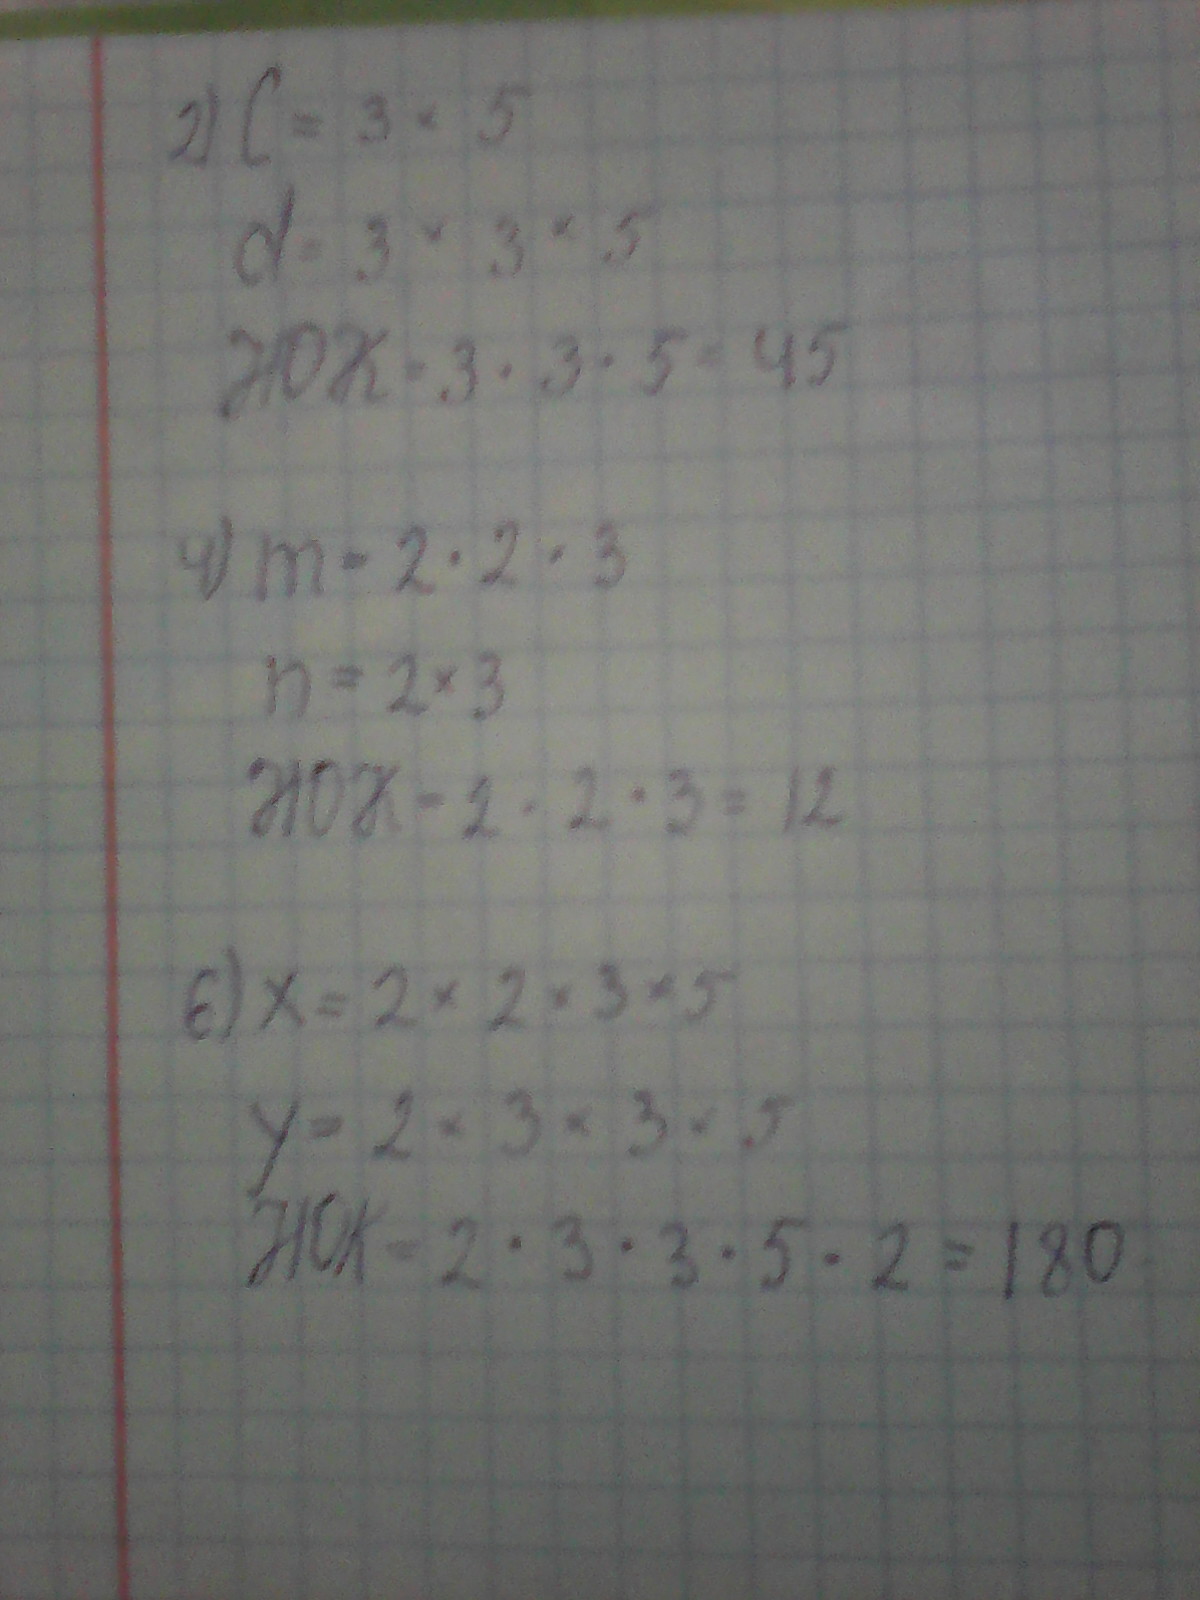 2) C = 3 × 5
d = 3 × 3 × 5
НОК = 3 · 3 · 5 = 45
4) m = 2 · 2 · 3
n = 2 × 3
НОК = 2 · 2 · 3 = 12
6) x = 2 × 2 × 3 × 5
y = 2 × 3 × 3 × 5
НОК = 2 · 3 · 3 · 5 · 2 = 180